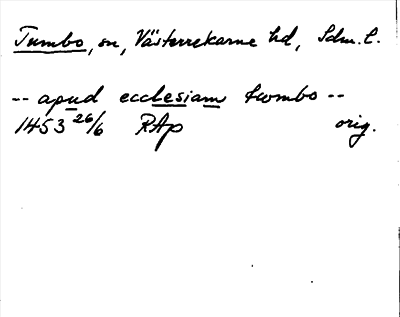 Tumbo, sn, Västerrekarne hd, Sdm. l.
-- apud ecclesiam twmbo --
1453 26/6 RAp orig.